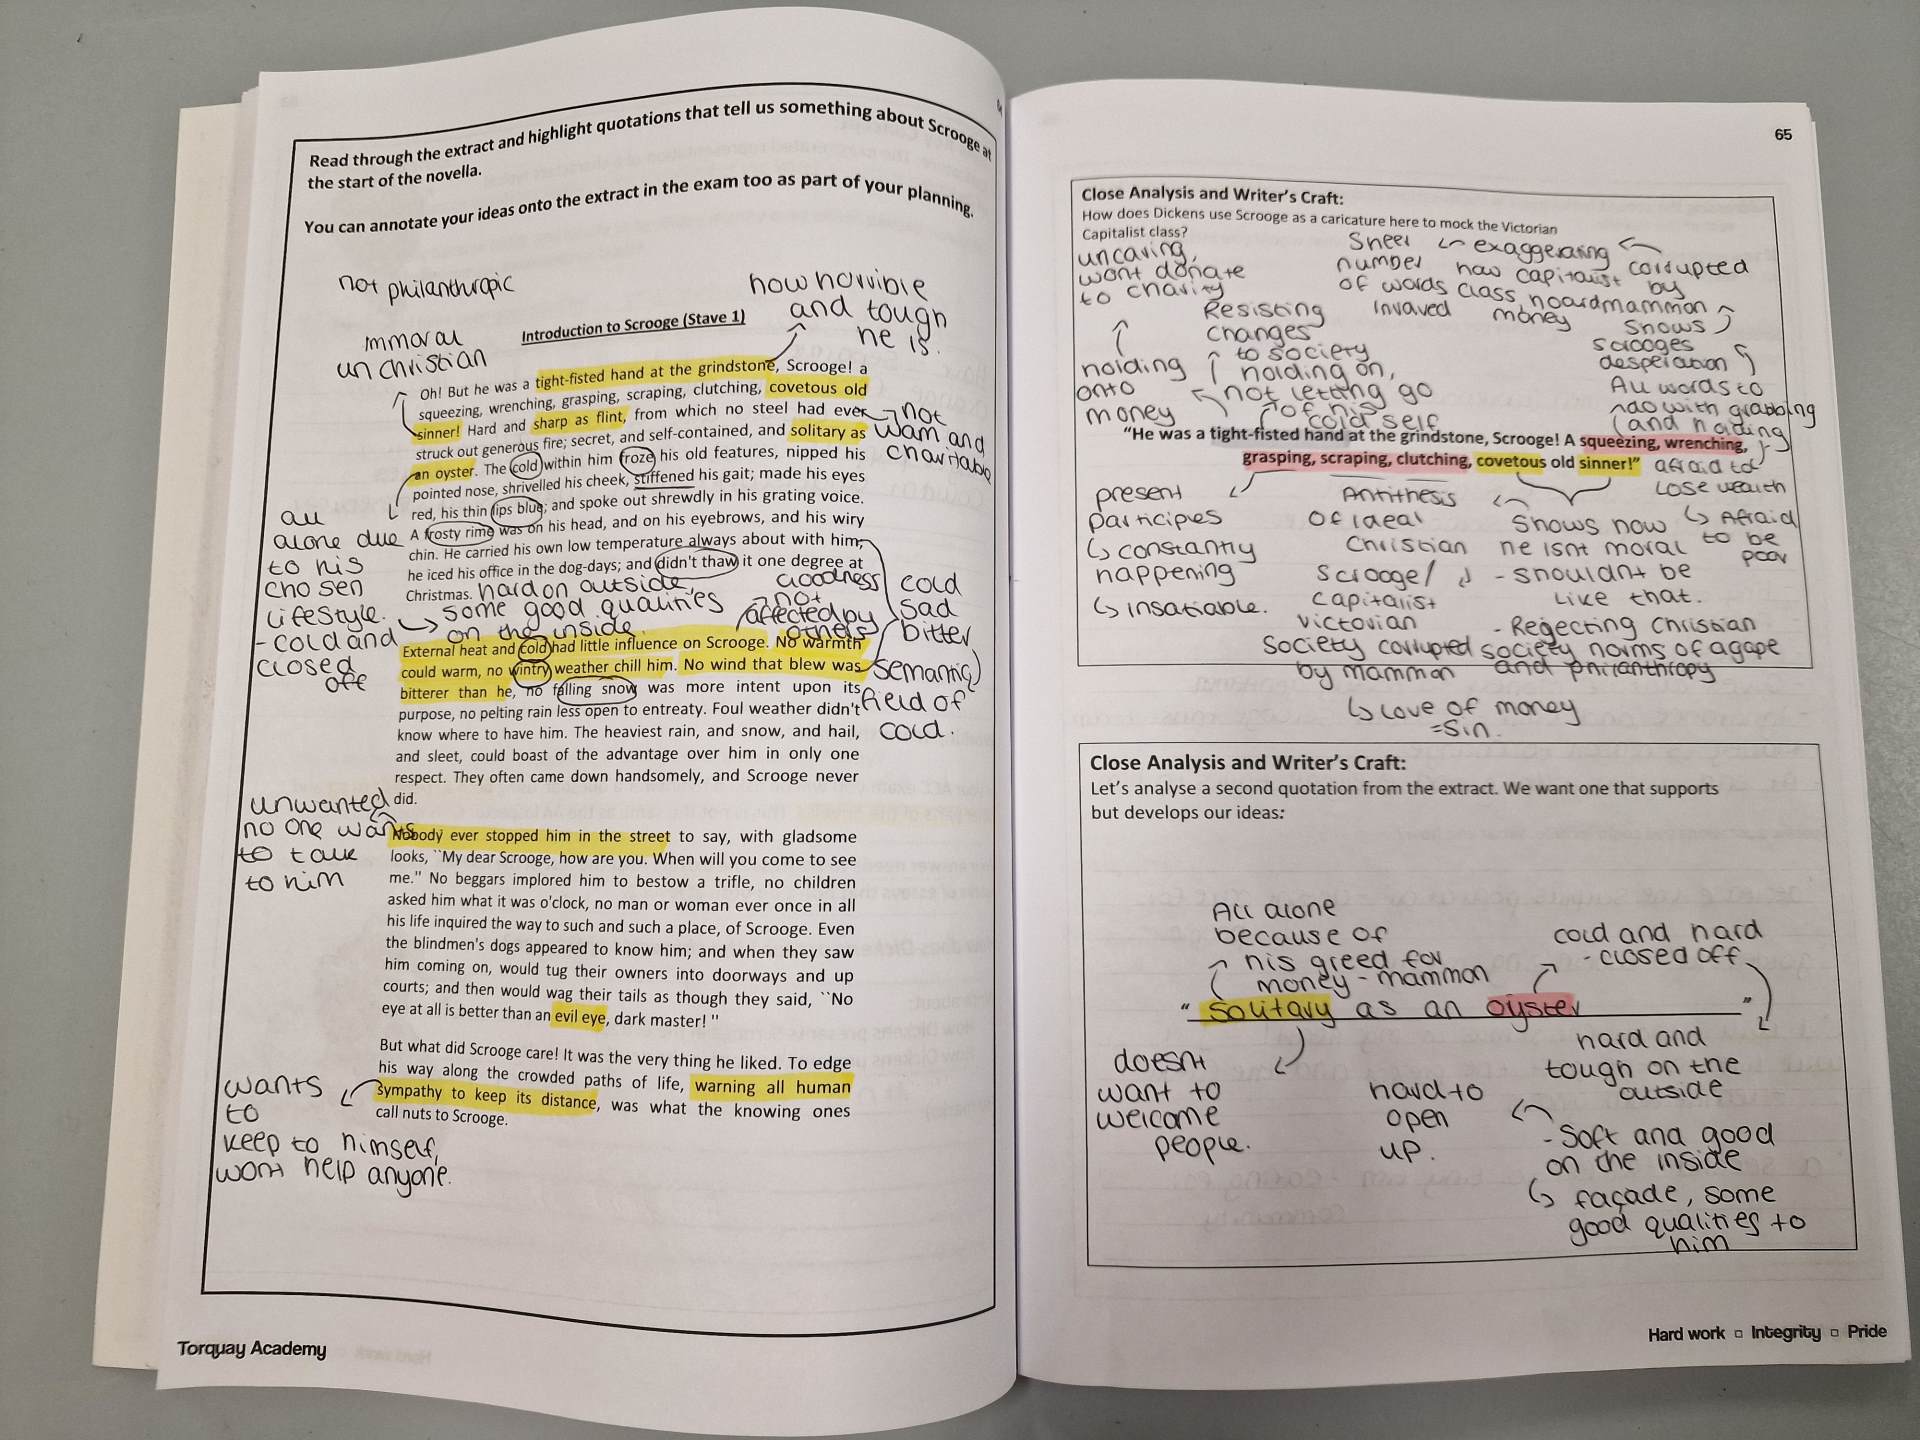 Read through the extract and highlight quotations that tell us something about Scrooge at
the start of the novella.
You can annotate your ideas onto the extract in the exam too as part of your planning.
not philanthropic
how horrible
and tough
he is.
immoral
unchristian
Introduction to Scrooge (Stave 1)
Oh! But he was a tight-fisted hand at the grindstone, Scrooge! a
squeezing, wrenching, grasping, scraping, clutching, covetous old
sinner! Hard and sharp as flint, from which no steel had ever
struck out generous fire; secret, and self-contained, and solitary as
an oyster. The cold within him froze his old features, nipped his
pointed nose, shrivelled his cheek, stiffened his gait; made his eyes
red, his thin lips blue; and spoke out shrewdly in his grating voice.
A frosty rime was on his head, and on his eyebrows, and his wiry
chin. He carried his own low temperature always about with him;
he iced his office in the dog-days; and didn't thaw it one degree at
Christmas.
not
wam and
charitable
all
alone due
to his
chosen
lifestyle.
- cold and
closed
off
hard on outside
some good qualities
on the inside.
Goodness
not
affected by
others
cold
sad
bitter
semantic
field of
cold.
External heat and cold had little influence on Scrooge. No warmth
could warm, no wintry weather chill him. No wind that blew was
bitterer than he, no falling snow was more intent upon its
purpose, no pelting rain less open to entreaty. Foul weather didn't
know where to have him. The heaviest rain, and snow, and hail,
and sleet, could boast of the advantage over him in only one
respect. They often came down handsomely, and Scrooge never
did.
unwanted
no one wants
to talk
to him
Nobody ever stopped him in the street to say, with gladsome
looks, ``My dear Scrooge, how are you. When will you come to see
me.'' No beggars implored him to bestow a trifle, no children
asked him what it was o'clock, no man or woman ever once in all
his life inquired the way to such and such a place, of Scrooge. Even
the blindmen's dogs appeared to know him; and when they saw
him coming on, would tug their owners into doorways and up
courts; and then would wag their tails as though they said, ``No
eye at all is better than an evil eye, dark master! ''
But what did Scrooge care! It was the very thing he liked. To edge
his way along the crowded paths of life, warning all human
sympathy to keep its distance, was what the knowing ones
call nuts to Scrooge.
wants
to
keep to himself,
wont help anyone.
Torquay Academy
65
Close Analysis and Writer's Craft:
How does Dickens use Scrooge as a caricature here to mock the Victorian
Capitalist class?
uncaring,
wont donate
to charity
holding
onto
money
Resisting
changes
to society
holding on,
not letting go
of his
cold self
Sheer
number
of words
exaggerating
how capitalist
class hoard
money
corrupted
by
mammon
shows
scrooges
desperation
All words to
do with grabbing
and holding
"He was a tight-fisted hand at the grindstone, Scrooge! A squeezing, wrenching,
grasping, scraping, clutching, covetous old sinner!"
afraid to
lose wealth
Afraid
to be
poor
present
participles
constantly
happening
insatiable.
Antithesis
of ideal
Christian
Scrooge/
capitalist
victorian
society corrupted
by mammon
love of money
=sin.
shows how
he isnt moral
- shouldnt be
like that.
- Rejecting Christian
society norms of agape
and philanthropy
Close Analysis and Writer's Craft:
Let's analyse a second quotation from the extract. We want one that supports
but develops our ideas:
All alone
because of
his greed for
money - mammon
cold and hard
- closed off
" Solitary as an oyster "
doesnt
want to
welcome
people.
hard to
open
up.
hard and
tough on the
outside
- Soft and good
on the inside
façade, some
good qualities to
him
Hard work □ Integrity □ Pride